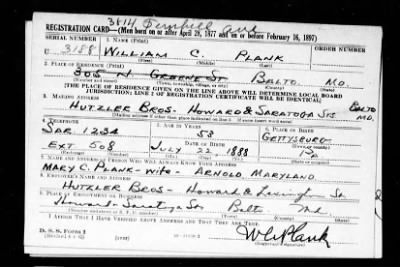 3814 Fernhill Ave
REGISTRATION CARD—(Men born on or after April 28, 1877 and on or before February 16, 1897)
SERIAL NUMBER 1. NAME (Print) ORDER NUMBER
U 3188 WILLIAM C. PLANK
(First) (Middle) (Last)
2. PLACE OF RESIDENCE (Print)
305 N. GREENE ST BALTO. MD.
[THE PLACE OF RESIDENCE GIVEN ON THE LINE ABOVE WILL DETERMINE LOCAL BOARD
JURISDICTION; LINE 2 OF REGISTRATION CERTIFICATE WILL BE IDENTICAL]
3. MAILING ADDRESS
HUTZLER BROS- HOWARD & SARATOGA STS BALTO MD.
[Mailing address if other than place indicated on line 2. If same insert word same]
4. TELEPHONE 5. AGE IN YEARS 6. PLACE OF BIRTH
SAR. 1234 53 GETTYSBURG
DATE OF BIRTH
EXT 508 JULY 22, 1888 Pa
7. NAME AND ADDRESS OF PERSON WHO WILL ALWAYS KNOW YOUR ADDRESS
MARY C. PLANK- WIFE- ARNOLD, MARYLAND
8. EMPLOYER'S NAME AND ADDRESS
HUTZLER BROS- Howard & Lexington Sts
9. PLACE OF EMPLOYMENT OR BUSINESS
Howard- Saratoga Sts Balto Md.
I AFFIRM THAT I HAVE VERIFIED ABOVE ANSWERS AND THAT THEY ARE TRUE.
D. S. S. Form 1 W C Plank